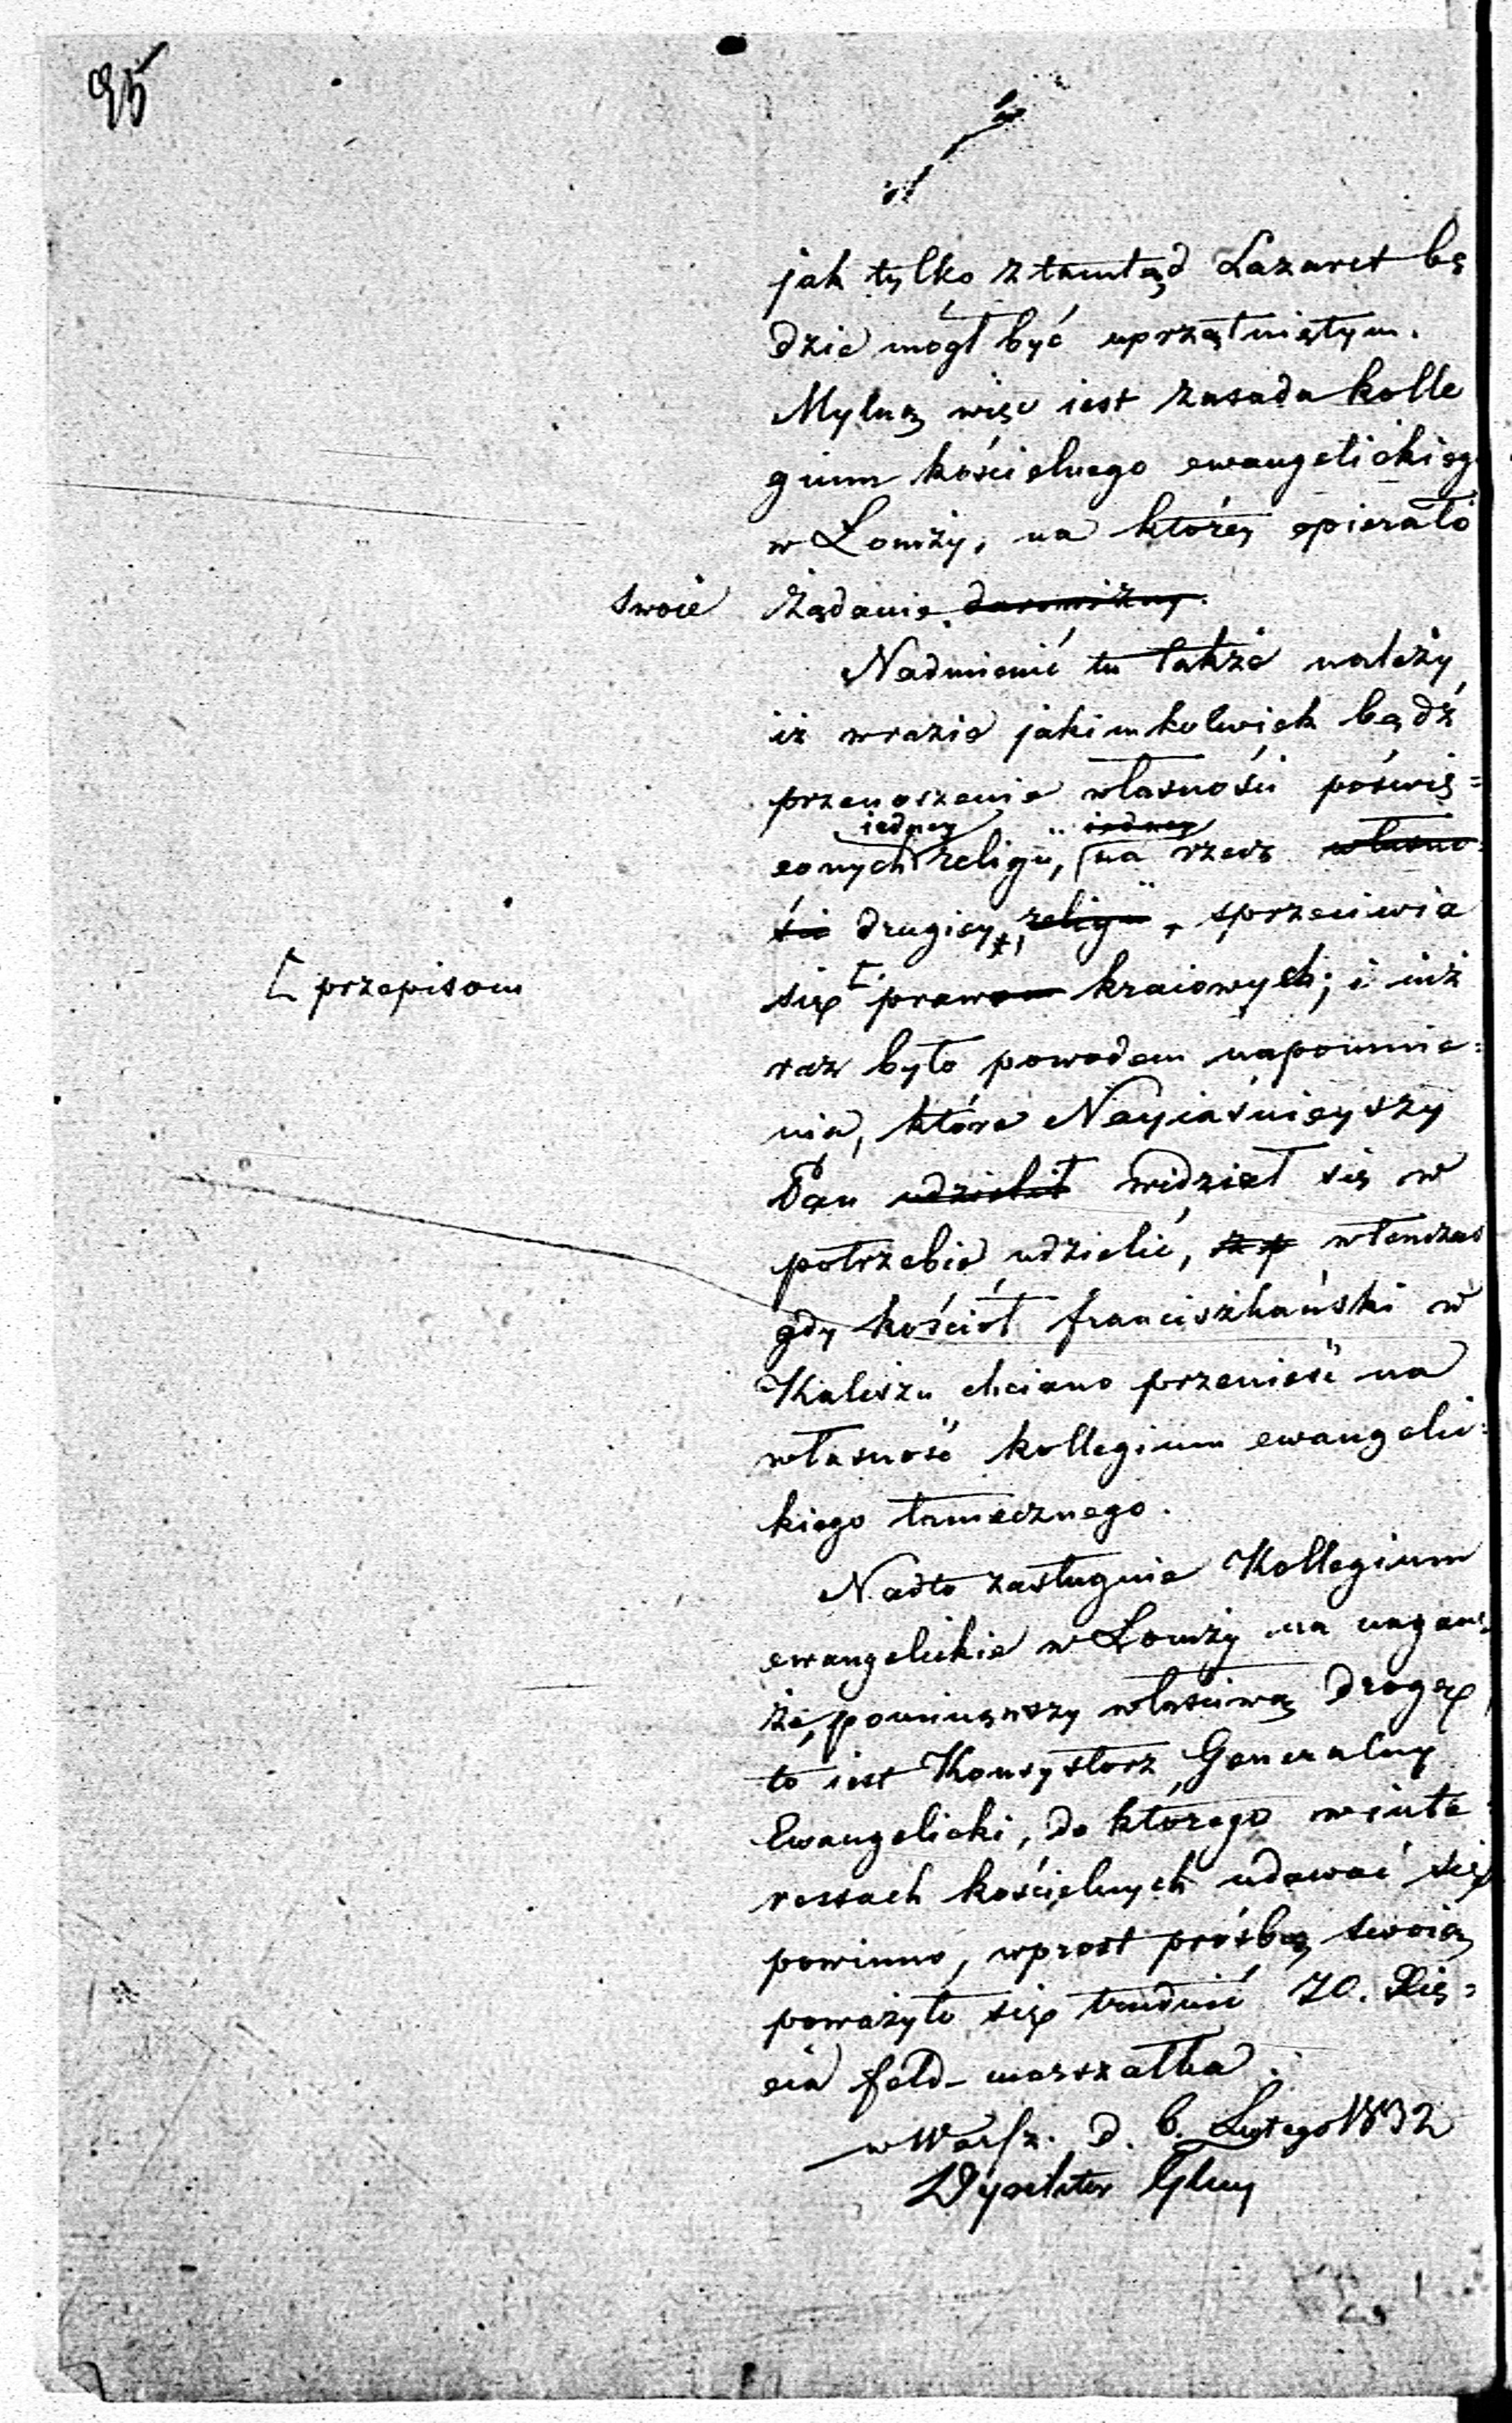 95
jak tylko ztamtąd Lazaret bę
dzie mógł być uprzątniętym.
Mylną więc iest zasada kolle
gium kościelnego ewangelickiego
w Łomży, na którey opierało
swoie żądanie
Nadmienić tu także należy,
iż wrazie jakimkolwiek bądź
przenoszenie własności poświę=
iedney iedney
conych religii, na rzecz własno=
ści drugiey religii, sprzeciwia
[ przepisom
się [ prawom kraiowych; i iuż
raz było powodem napomnie=
nia, które Nayiaśnieyszy
Pan udzielił widział się w
potrzebie udzielić, wtenczas
gdy kościół franciszkański w
Kaliszu chciano przenieść na
własność kollegium ewangelic=
kiego tamecznego.
Nadto zasługuie Kollegium
ewangelickie w Łomży na nagan
że, pominąwszy właściwą drogę,
to iest Konsystorz Generalny
Ewangelicki, do którego w inte=
ressach kościelnych udawać się
powinno, wprost prośbą swoią
poważyło się trudnić JO. Xię=
cia feld-marszałka.
w Warsz. d. 6. Lutego 1832
Dyrektor Głny